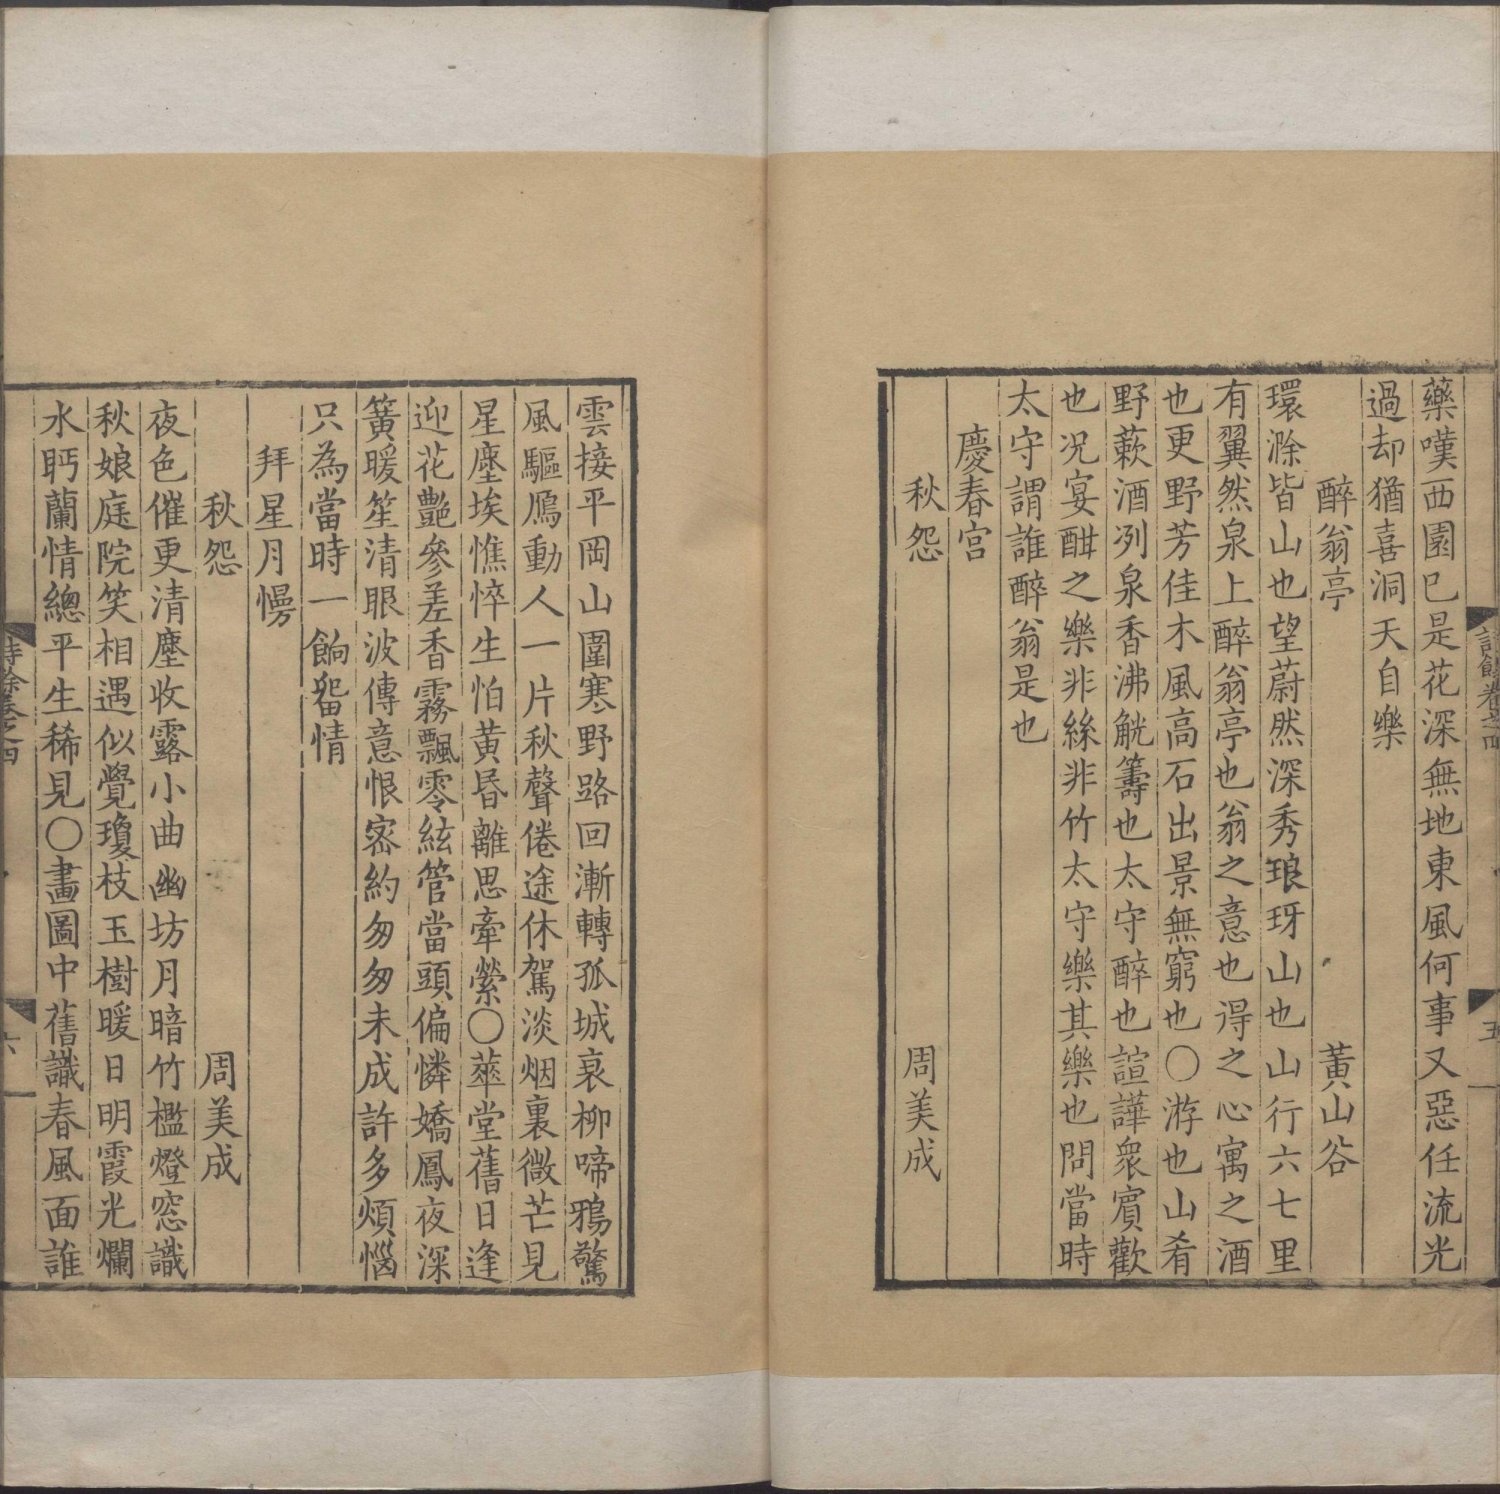 藥嘆西園巳是花深無地東風何事又惡任流光
過却猶喜洞天自樂
醉翁亭 黃山谷
環滁皆山也望蔚然深秀琅玡山也山行六七里
有翼然泉上醉翁亭也翁之意也得之心寓之酒
也更野芳佳木風高石出景無窮也〇游也山肴
野蔌酒冽泉香沸觥籌也太守醉也諠譁衆賓歡
也况宴酣之樂非絲非竹太守樂其樂也問當時
太守謂誰醉翁是也
慶春宮
秋怨 周美成
雲接平岡山圍寒野路回漸轉孤城衰柳啼鴉驚
風驅鴈動人一片秋聲倦途休駕淡烟裏微芒見
星塵埃憔悴生怕黄昏離思牽縈〇華堂舊日逢
迎花艷參差香霧飄零絃管當頭偏憐嬌鳳夜深
簧暖笙清眼波傳意恨宻約匆匆未成許多煩惱
只為當時一餉留情
拜星月慢
秋怨 周美成
夜色催更清塵收露小曲幽坊月暗竹檻燈窓識
秋娘庭院笑相遇似覺瓊枝玉樹暖日明霞光爛
水眄蘭情總平生稀見〇畫圖中舊識春風面誰
詩餘卷之四
六